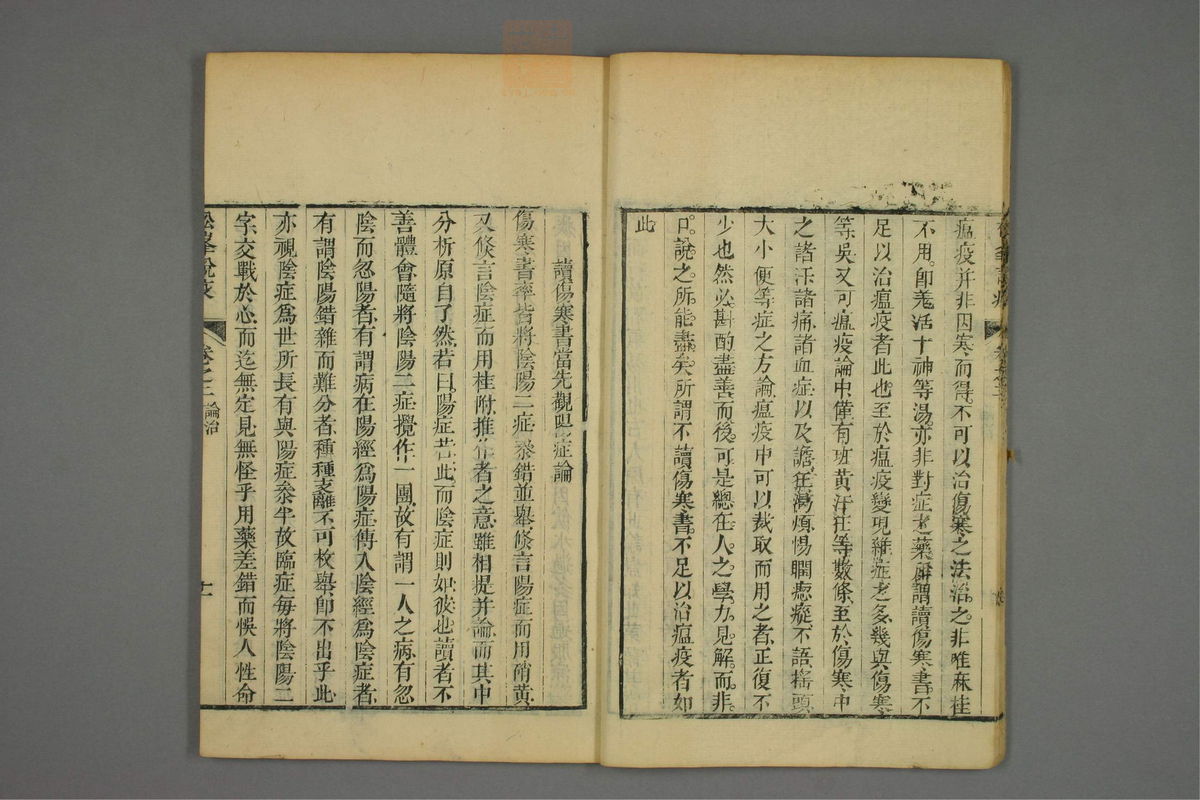 瘟疫并非因寒而得不可以治傷寒之法治之非唯麻桂
不用即羗活十神等湯亦非對症之藥所謂讀傷寒書不
足以治瘟疫者此也至於瘟疫變現雜症之多幾與傷寒
等吳又可瘟疫論中僅有斑黃汗狂等數條至於傷寒中
之諸汗諸痛諸血症以及譫狂渴煩惕瞤瘛瘲不語搖頭
大小便等症之方論瘟疫中可以裁取而用之者正復不
少也然必斟酌盡善而後可是總在人之學力見解而非
口說之所能盡矣所謂不讀傷寒書不足以治瘟疫者如
此
讀傷寒書當先觀陽症論
傷寒書率皆將陰陽二症叅錯並舉倐言陽症而用硝黃
又倐言陰症而用桂附推作者之意雖相提并論而其中
分析原自了然若曰陽症若此而陰症則如彼也讀者不
善體會隨將陰陽二症攪作一團故有謂一人之病有忽
陰而忽陽者有謂病在陽經爲陽症傳入陰經爲陰症者
有謂陰陽錯雜而難分者種種支離不可枚舉即不出乎此
亦視陰症爲世所長有與陽症叅半故臨症每將陰陽二
字交戰於心而迄無定見無怪乎用藥差錯而悞人性命
松峯說疫
卷之二
論治
十一